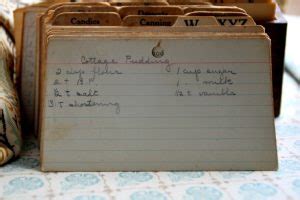 Candies Canning W XYZ
Cottage Pudding
2 cup flour 1 cup sugar
2 t B.P. 1 " milk
½ t salt ½ t vanilla
3 T shortening